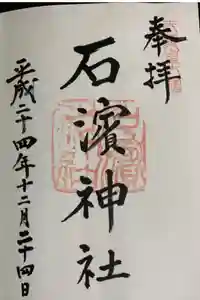 奉拝
石濱神社
平成二十四年十二月二十四日